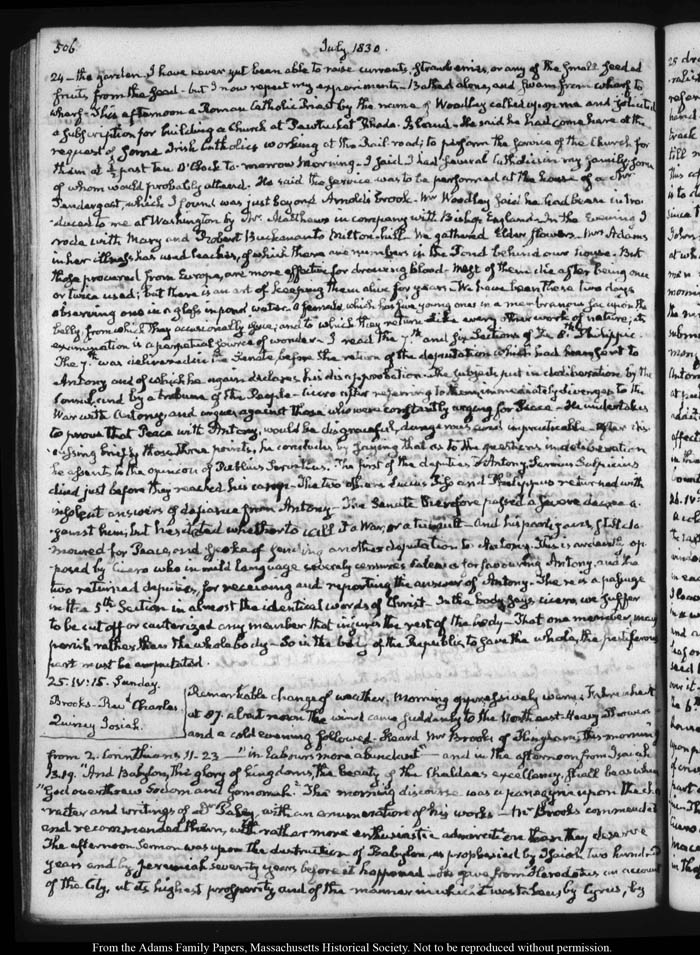 506
July 1830.
24 — the garden. I have never yet been able to raise currants, strawberries, or any of the small seeded
fruits from the seed — but I now repeat my experiments — Bathed alone, and swam from wharf to
wharf — This afternoon a Roman Catholic Priest by the name of Woodley called upon me and solicited
a subscription for building a Church at Pawtucket Rhode Island — He said he had come here at the
request of some Irish Catholics working at the Rail-road; to perform the service of the Church for
them at ½ past ten O'Clock to-morrow morning — I said I had several Catholics in my family, some
of whom would probably attend. He said the service was to be performed at the house of a Mr
Pendergast, which I found was just beyond Arnold's brook. Mr Woodley said he had been intro
duced to me at Washington by Mr Matthews in company with Bishop England. In the Evening I
rode with Mary and Robert Buchanan to Milton-hill. We gathered Elder flowers — Mrs Adams
in her illness has used leaches, of which there are numbers in the Pond behind our house. But
those procured from Europe, are more effective for drawing blood — Most of them die after being once
or twice used; but there is an art of keeping them alive for years. We have been these two days
observing one in a glass in pond water — a female, which has five young ones in a membranous sac upon the
belly, from which they occasionally issue; and to which they return. Like every other work of nature; its
examination is a perpetual source of wonder — I read the 7th and six Sections of the 8th Philippic.
The 7th was delivered in the Senate, before the return of the deputation which had been sent to
Antony and of which he again declares his disapprobation. The subjects put in deliberation by the
Consul, and by a tribune of the People — Cicero after referring to them immediately diverges to the
War with Antony, and argues against those who were constantly arguing for Peace — He undertakes
to prove that Peace with Antony, would be disgraceful, dangerous and impracticable — after dis
cussing briefly those three points, he concludes by saying that as to the questions in deliberation
he assents to the opinion of Publius Servilius. The first of the deputies to Antony, Servius Sulpicius
died just before they reached his camp — The two others Lucius Piso and Philippus returned with
insolent answers of defiance from Antony — The Senate therefore passed a severe decree a
gainst him, but hesitated whether to call it a War, or a tumult — and his partizans still cla
moured for Peace, and spoke of sending another deputation to Antony. This is ardently op
posed by Cicero who in mild language severely censures Calenus for favouring Antony, and the
two returned deputies, for receiving and reporting the answer of Antony. There is a passage
in the 5th Section in almost the identical words of Christ — In the body says Cicero, we suffer
to be cut off or cauterized any member that injures the rest of the body — That one member, may
perish rather than the whole body — So in the body of the Republic, to save the whole, the pestiferous
part must be amputated.
25. IV: 15. Sunday.
Brooks — Revd Charles
Quincy Josiah.
Remarkable change of weather. Morning oppressively warm; Fahrenheit
at 87. about noon the wind came suddenly to the North east — Heavy Showers
and a cold evening followed. Heard Mr Brooks of Hingham, this morning
from 2. Corinthians 11-23 — "in labours more abundant" — and in the afternoon from Isaiah
13.19. "And Babylon, the glory of kingdoms, the beauty of the Chaldees excellency, shall be as when
"God overthrew Sodom and Gomorrah." The morning discourse was a panegyric upon the cha
racter and writings of Dr Paley, with an enumeration of his works — Mr Brooks commended
and recommended them, with rather more enthusiastic admiration than they deserve
The afternoon Sermon was upon the destruction of Babylon, as prophesied by Isaiah two hundred
years and by Jeremiah seventy years before it happened — He gave from Herodotus an account
of the City, at its highest prosperity and of the manner in which it was taken by Cyrus, by
From the Adams Family Papers, Massachusetts Historical Society. Not to be reproduced without permission.